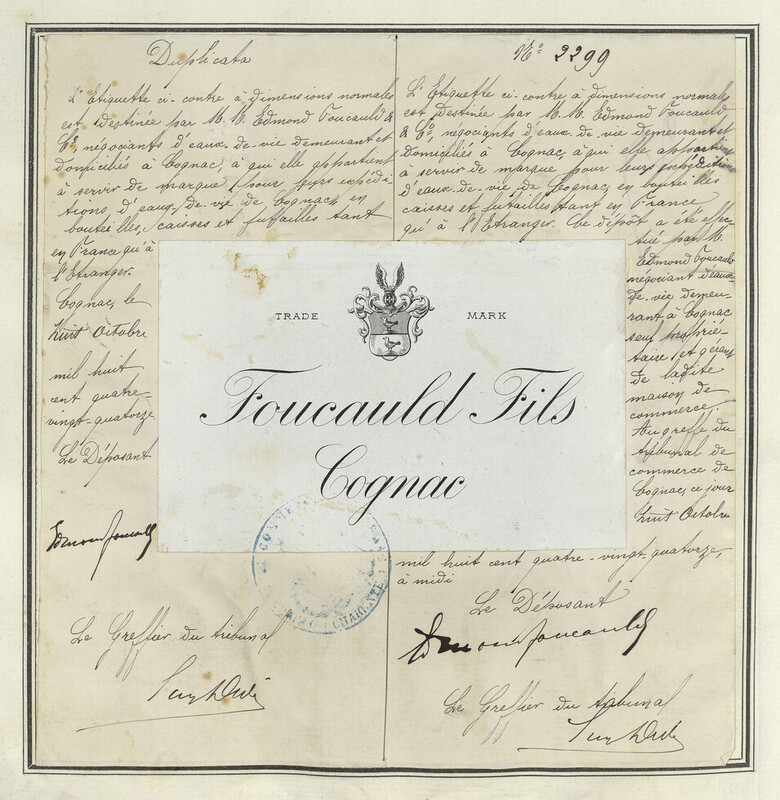 Duplicata
L'Etiquette ci-contre à dimensions normales
est destinée par M.M. Edmond Foucauld &
Cie, négociants d'eaux-de-vie demeurant et
domiciliés à Cognac, à qui elle appartient
à servir de marque pour leurs expédi
tions d'eaux-de-vie de Cognac, en
bouteilles, caisses et futailles tant
en France qu'à
l'Etranger.
Cognac, le
huit Octobre
mil huit
cent quatre-
vingt-quatorze
Le Déposant
Edmond Foucauld
Le Greffier du tribunal
No 2299
L'Etiquette ci-contre à dimensions normales
est destinée par M.M. Edmond Foucauld
& Cie, négociants d'eaux-de-vie demeurant et
domiciliés à Cognac, à qui elle appartient
à servir de marque pour leurs expéditions
d'eaux-de-vie de Cognac, en bouteilles
caisses et futailles tant en France
qu'à l'Etranger. Ce dépôt a été effec
tué par M.
Edmond Foucauld
négociant d'eaux-
de-vie demeu-
rant à Cognac
seul proprié-
taire et gérant
de ladite
maison de
commerce.
Au greffe du
tribunal de
commerce de
Cognac, ce jour
huit Octobre
mil huit cent quatre-vingt-quatorze,
à midi
Le Déposant
Edmond Foucauld
Le Greffier du tribunal
TRADE MARK
Foucauld Fils
Cognac
CHARENTE